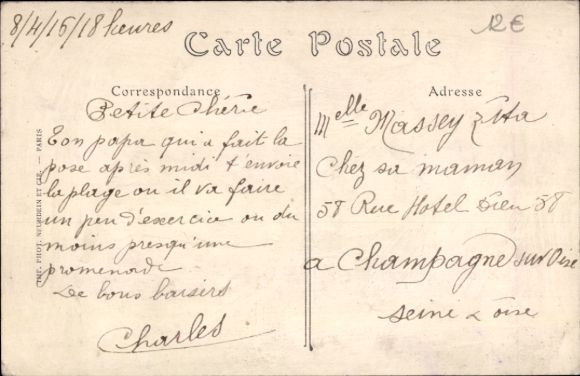 8/4/16/18 heures
12€
Carte Postale
Correspondance
Petite Chérie
Ton papa qui a fait la
pose après midi t'envoie
la plage ou il va faire
un peu d'exercice ou du
moins presqu'une
promenade
De bons baisers
Charles
Adresse
Melle Massey Zita
Chez sa maman
58 Rue Hotel Dieu 58
a Champagne sur Oise
Seine & Oise
IMP. PHOT. NEURDEIN ET CIE. — PARIS